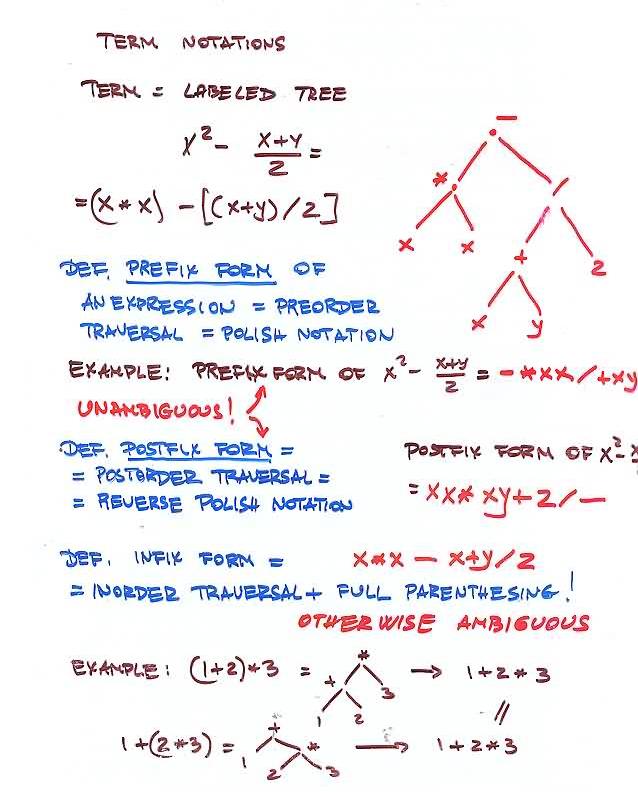 TERM NOTATIONS
TERM = LABELED TREE
x² - (x+y)/2 =
= (x * x) - [(x+y)/2]
-
*
/
x
x
+
2
x
y
DEF. PREFIX FORM OF
AN EXPRESSION = PREORDER
TRAVERSAL = POLISH NOTATION
EXAMPLE: PREFIX FORM OF x² - (x+y)/2 = - * x x / + x y
UNAMBIGUOUS!
DEF. POSTFIX FORM =
= POSTORDER TRAVERSAL =
= REVERSE POLISH NOTATION
POSTFIX FORM OF x² -
= x x * x y + 2 / -
DEF. INFIX FORM = x * x - x + y / 2
= INORDER TRAVERSAL + FULL PARENTHESING!
OTHERWISE AMBIGUOUS
EXAMPLE: (1+2)*3 = * + 3 1 2 → 1+2*3
//
1+(2*3) = + 1 * 2 3 → 1+2*3